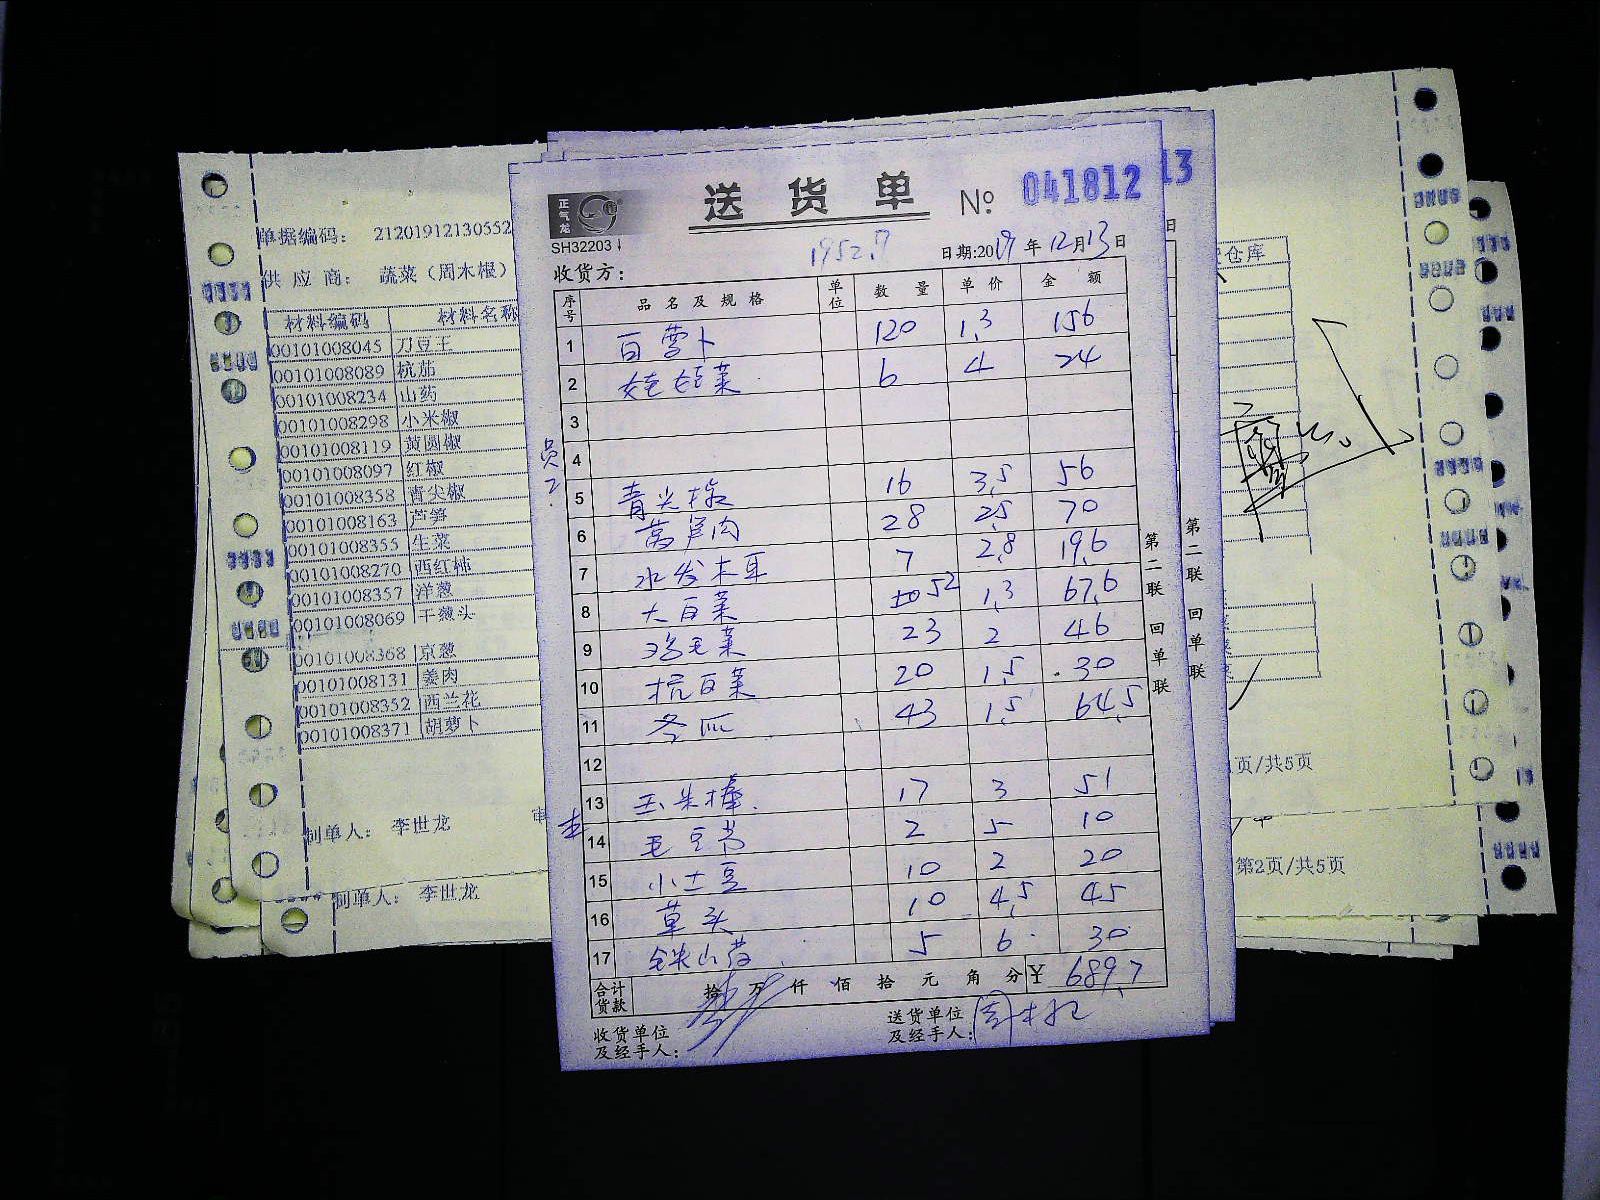 送货单 № 041812
13
正气龙
SH32203
1952.7
日期:2019年12月13日
收货方:
序号 品名及规格 单位 数量 单价 金额
1 白萝卜 120 1.3 156
2 娃娃菜 6 4 24
3
4
5 青尖椒 16 3.5 56
6 莴笋肉 28 2.5 70
7 水发木耳 7 2.8 19.6
8 大白菜 52 1.3 67.6
9 鸡毛菜 23 2 46
10 杭白菜 20 1.5 30
11 冬瓜 43 1.5 64.5
12
13 玉米棒 17 3 51
14 毛豆节 2 5 10
15 小土豆 10 2 20
16 草头 10 4.5 45
17 铁山药 5 6 30
合计货款 拾万仟佰拾元角分 ¥ 689.7
收货单位及经手人:
送货单位及经手人:
第二联 回单联
第二联 回单联
单据编码: 21201912130552
供应商: 蔬菜(周木根)
材料编码 材料名称
00101008045 刀豆王
00101008089 杭茄
00101008234 山药
00101008298 小米椒
00101008119 黄圆椒
00101008097 红椒
00101008358 青尖椒
00101008163 芦笋
00101008355 生菜
00101008270 西红柿
00101008357 洋葱
00101008069 干葱头
00101008368 京葱
00101008131 姜肉
00101008352 西兰花
00101008371 胡萝卜
制单人: 李世龙 审
制单人: 李世龙
日
仓库
1页/共5页
第2页/共5页